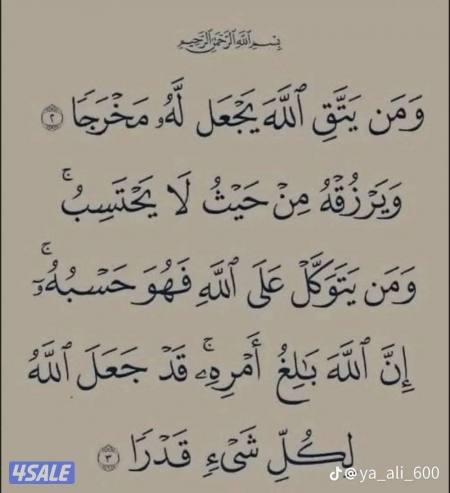 بِسْمِ اللَّهِ الرَّحْمَٰنِ الرَّحِيمِ
وَمَن يَتَّقِ ٱللَّهَ يَجْعَل لَّهُۥ مَخْرَجًا ٢
وَيَرْزُقْهُ مِنْ حَيْثُ لَا يَحْتَسِبُ ۚ
وَمَن يَتَوَكَّلْ عَلَى ٱللَّهِ فَهُوَ حَسْبُهُۥٓ ۚ
إِنَّ ٱللَّهَ بَٰلِغُ أَمْرِهِۦ ۚ قَدْ جَعَلَ ٱللَّهُ
لِكُلِّ شَىْءٍ قَدْرًا ٣
4SALE
@ya_ali_600